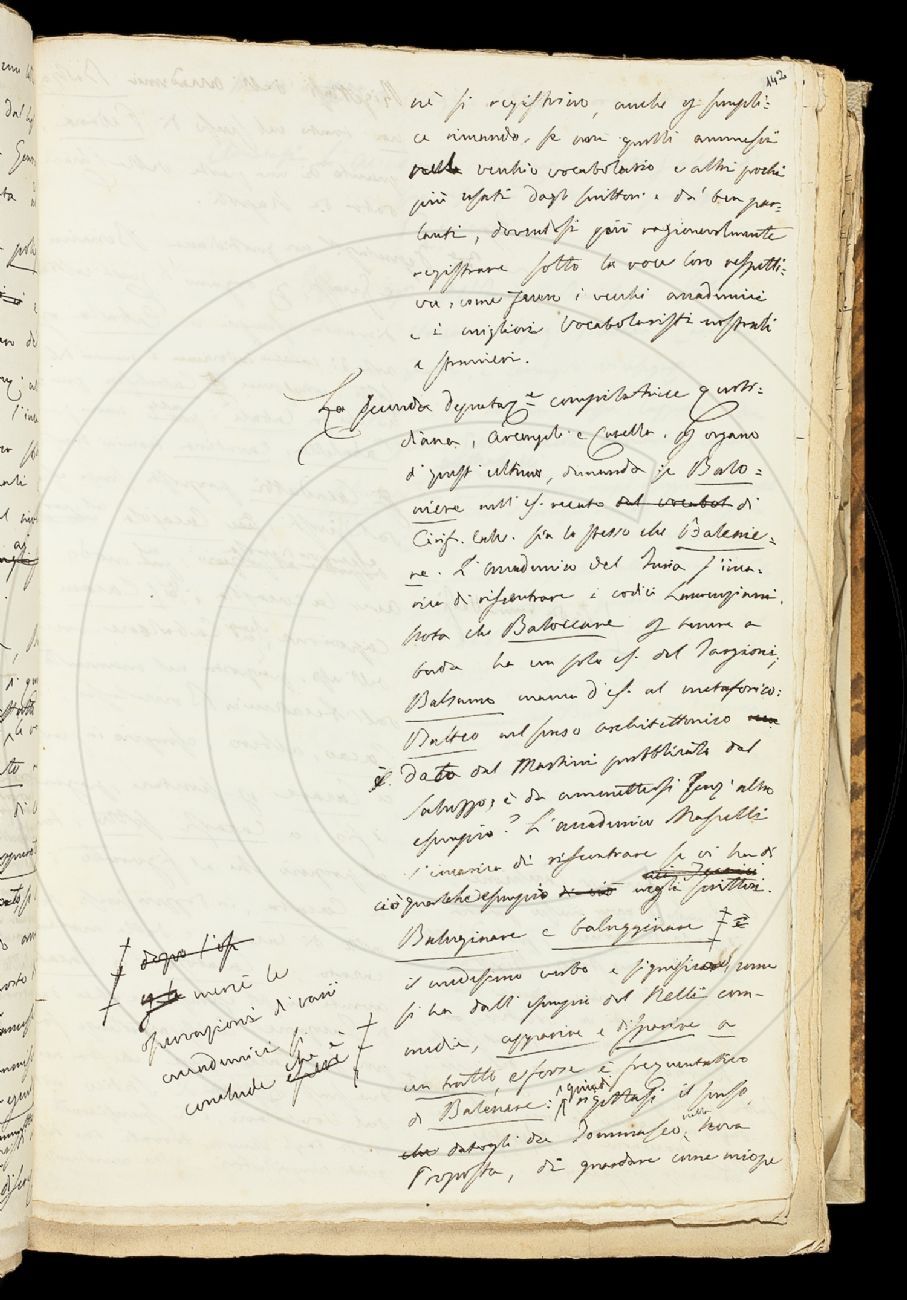 142
nè si registrino, anche p semplì-
ce rimando, se non quelli ammessi
nel vecchio vocabolario e altri pochi
più usati dagli scrittori e da' ben par-
lanti, dovendosi più ragionevolmente
registrare sotto la voce loro rispetti-
va, come fecero i vecchi accademici
e i migliori vocabolaristi nostrali
e stranieri.
La seconda deputaz.e compilatrice quoti-
diana, Arcangeli e Casella, p organo
di quest'ultimo, domanda se Balo-
niere nell'es. recato dal vocabol di
Cirif. Calv. sia lo stesso che Balenie-
re. L'accademico del Furia s'inca-
rica di riscontrare i codici Laurenziani.
Nota che Baloccare p tenere a
bada ha un solo es. del Targioni;
Balsamo manca d'es. al metaforico:
Balteo nel senso architettonico
è dato dal Martini pubblicato dal
Saluzzo; è da ammettersi senz'altro
esempio? L'accademico Masselli
s'incarica di riscontrare se vi ha di
ciò qualche esempio di ciò negli scrittori.
Baluginare e balugginare ‡ è
il medesimo verbo e significa, come
si ha dall'esempio del Nelli com-
media, apparire e disparire a
un tratto, e forse è frequentativo
di Balenare: quindi rigettasi il senso
che datogli da Tommaseo, nella Nova
Proposta, di guardare come miope
‡ dopo l'es.
mercè le
osservazioni di varii
accademici si
conclude che è ‡